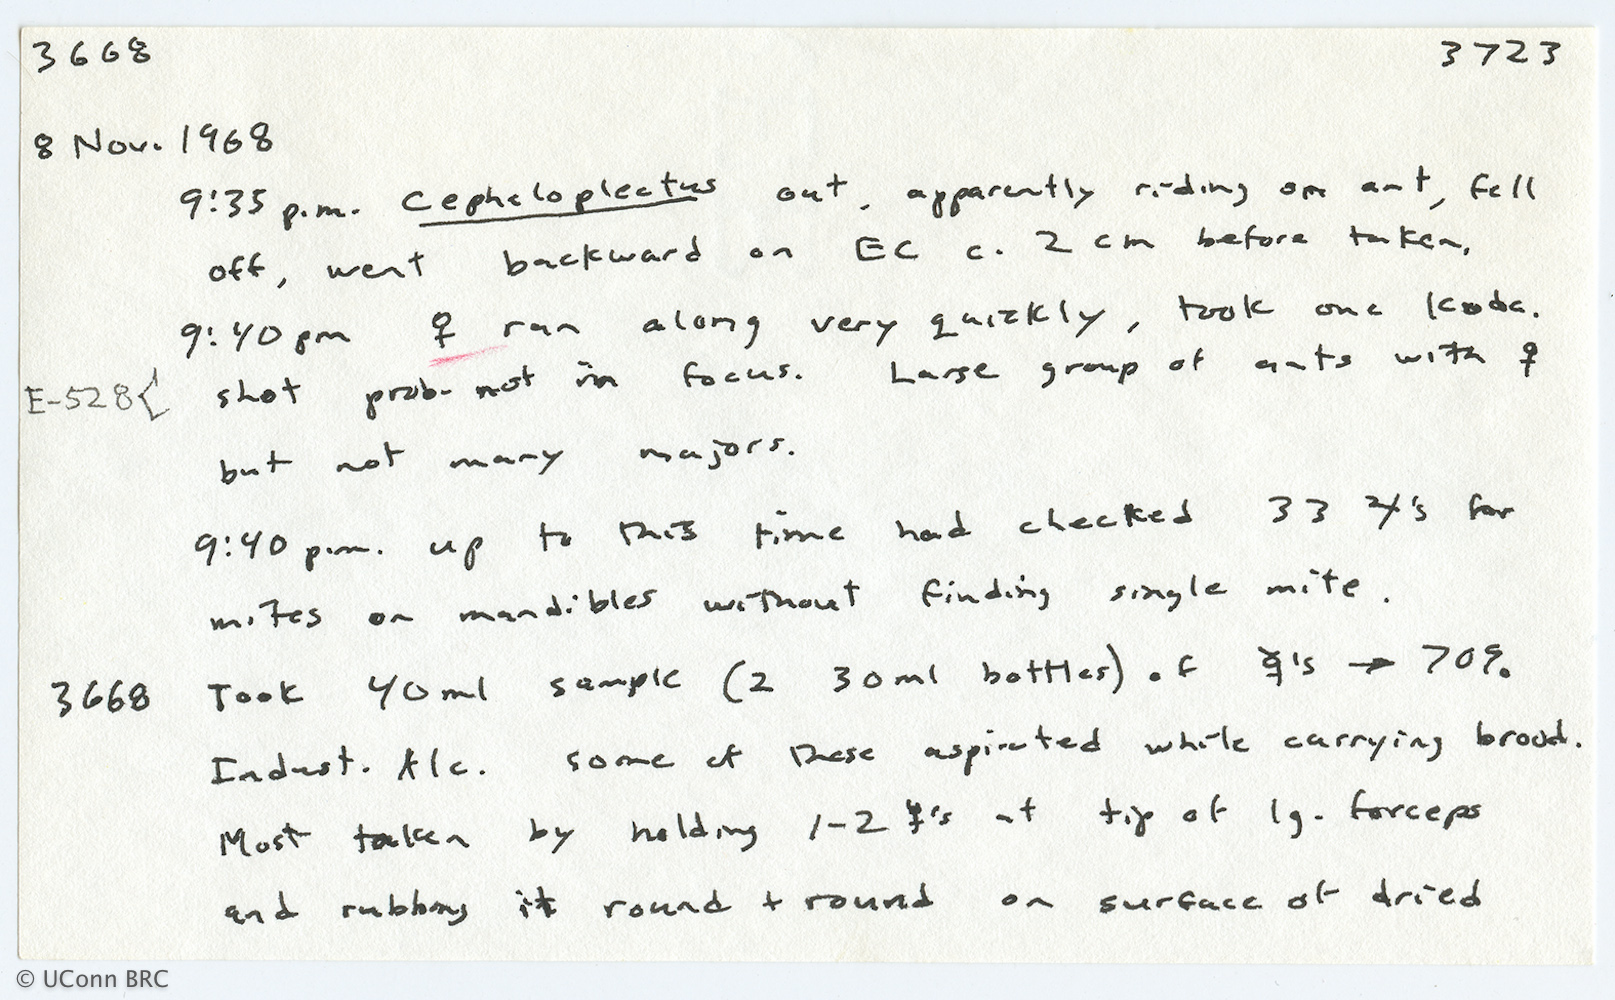 3668 3723
8 Nov. 1968
9:35 p.m. Cepheloplectus out, apparently riding on ant, fell
off, went backward on EC c. 2 cm before taken.
9:40 pm ♀ ran along very quickly, took one Koda.
E-528{ shot prob. not in focus. Large group of ants with ♀
but not many majors.
9:40 p.m. up to this time had checked 33 's for
mites on mandibles without finding single mite.
3668 Took 40 ml sample (2 30 ml bottles) of 's → 70%
Indust. Alc. some of these aspirated while carrying brood.
Most taken by holding 1-2 's at tip of lg. forceps
and rubbing it round + round on surface of dried
© UConn BRC